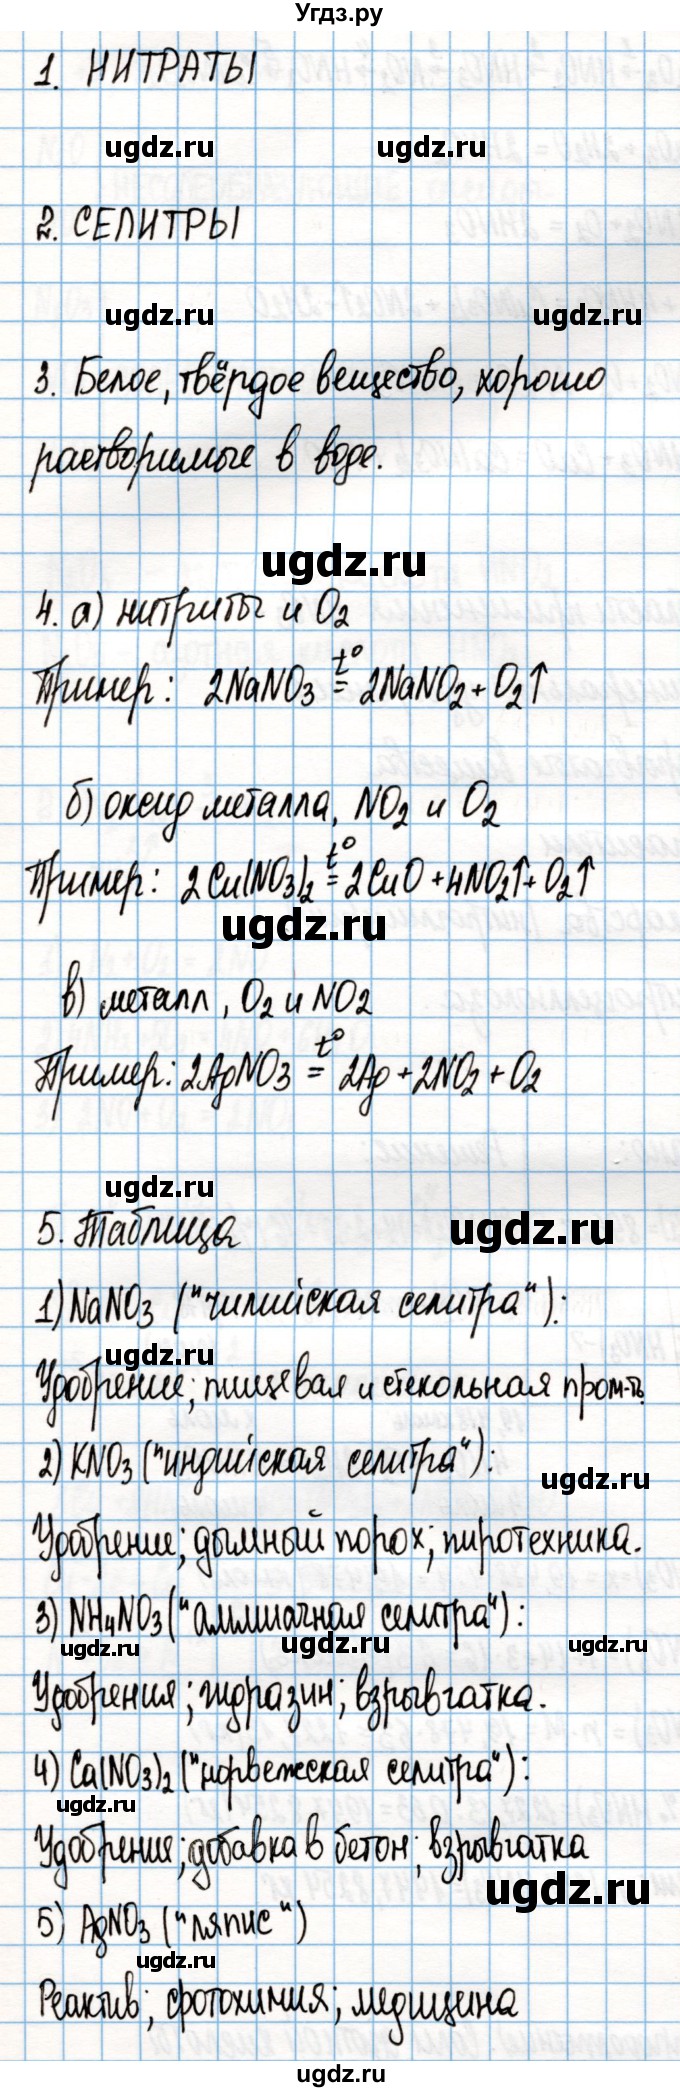 Угдз.ру
1. НИТРАТЫ
ugdz.ru ugdz.ru
2. СЕЛИТРЫ
ugdz.ru ugdz.ru
3. Белое, твёрдое вещество, хорошо
растворимые в воде.
ugdz.ru
4. а) нитриты и O₂
Пример: 2NaNO₃ =t°= 2NaNO₂ + O₂↑
б) оксид металла, NO₂ и O₂
Пример: 2Cu(NO₃)₂ =t°= 2CuO + 4NO₂↑ + O₂↑
ugdz.ru
в) металл, O₂ и NO2
Пример: 2AgNO₃ =t°= 2Ag + 2NO₂ + O₂
ugdz.ru
5. Таблица ugdz.ru
1) NaNO₃ ("чилийская селитра"):
ugdz.ru
Удобрение; пищевая и стекольная пром-ть.
2) KNO₃ ("индийская селитра"):
ugdz.ru
Удобрение; дымный порох; пиротехника.
3) NH₄NO₃ ("аммиачная селитра"):
ugdz.ru ugdz.ru
Удобрения; гидразин; взрывчатка.
4) Ca(NO₃)₂ ("норвежская селитра"):
ugdz.ru
Удобрения; добавка в бетон; взрывчатка
ugdz.ru
5) AgNO₃ ("ляпис")
ugdz.ru
Реактив; фотохимия; медицина
ugdz.ru